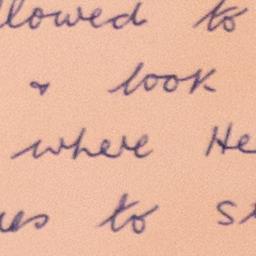 llowed to
& look
where He
ues to s